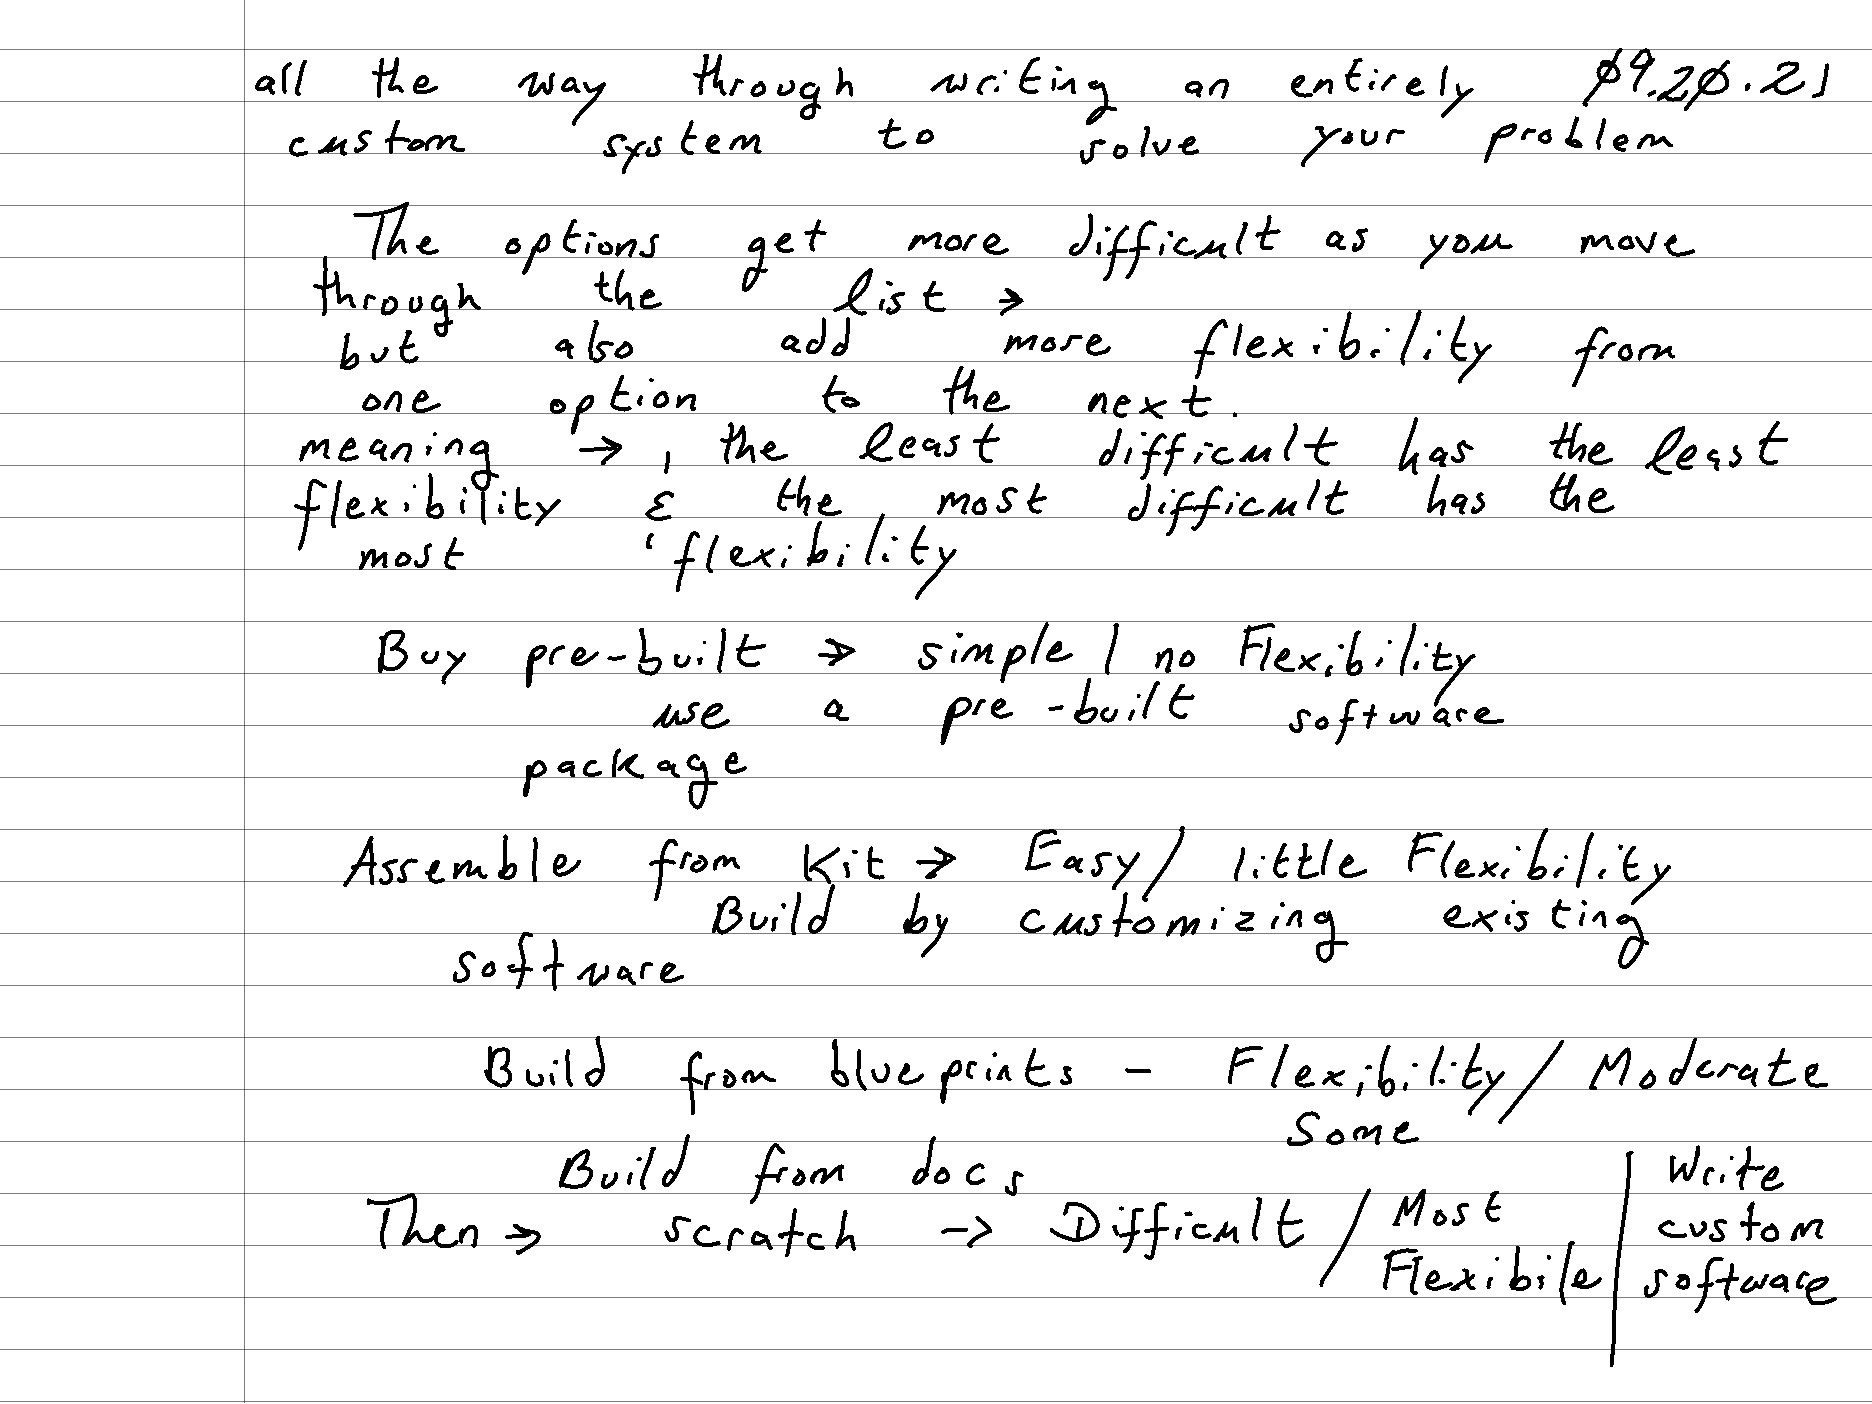 all the way through writing an entirely 09.20.21
custom system to solve your problem
The options get more difficult as you move
through the list →
but also add more flexibility from
one option to the next.
meaning → , the least difficult has the least
flexibility & the most difficult has the
most flexibility
Buy pre-built → simple / no Flexibility
use a pre-built software
package
Assemble from Kit → Easy / little Flexibility
Build by customizing existing
software
Build from blueprints - Flexibility / Moderate
Some
Build from docs
Then → scratch → Difficult / Most Flexibile | Write custom software